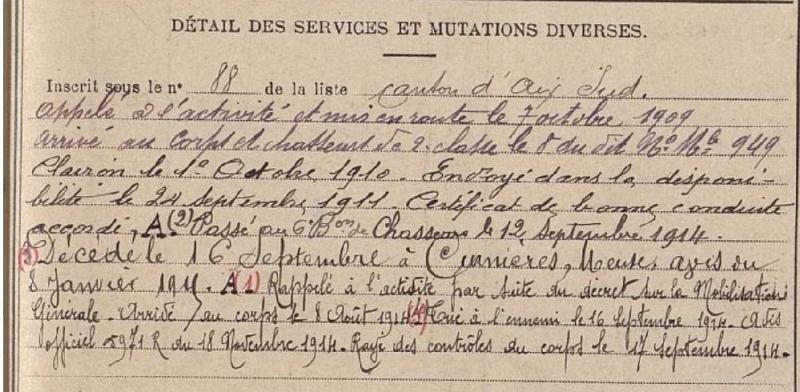 DÉTAIL DES SERVICES ET MUTATIONS DIVERSES.
Inscrit sous le n° 88 de la liste canton d'Aix Sud.
appelé à l'activité et mis en route le 7 octobre 1909
arrivé au corps et chasseur de 2e classe le 8 du dit No Mle 949
Clairon le 1er Octobre 1910. Envoyé dans la disponi-
bilité le 24 septembre 1911. Certificat de bonne conduite
accordé, A. (2) Passé au 6e Bon de Chasseurs le 12 Septembre 1914.
(3) Décédé le 16 Septembre à Cumières, Meuse, avis du
8 Janvier 191. A (1) Rappelé à l'activité par suite du décret sur la Mobilisation
Générale. Arrivé au corps le 8 Août 1914 Tué à l'ennemi le 16 Septembre 1914. (Avis
officiel 971 R du 18 Novembre 1914. Rayé des contrôles du corps le 17 Septembre 1914.